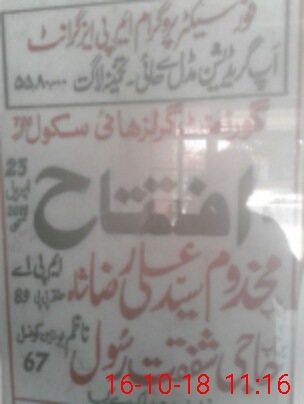 فور سیکٹر پروگرام ایم پی ایز گرانٹ
اپ گریڈیشن مڈل سے ہائی۔ تخمینہ لاگت 55,80,000
گورنمنٹ گرلز ہائی سکول
افتتاح
23 اپریل
مخدوم سید علی رضا شاہ
ایم پی اے
حلقہ پی پی 89
حاجی شفقت رسول
ناظم یونین کونسل 67
16-10-18 11:16